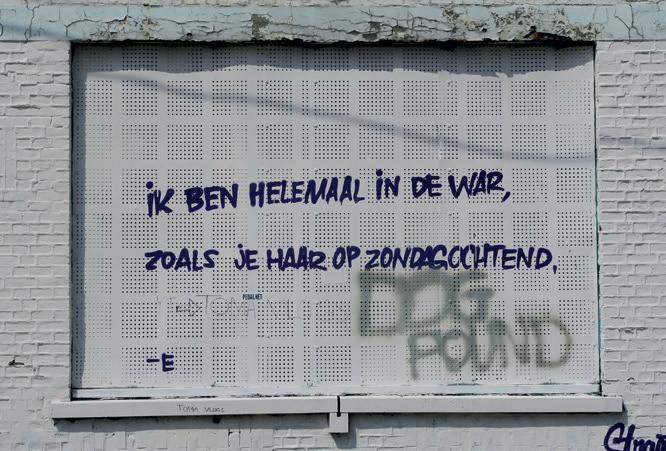 iK BEN HELEMAAL iN DE WAR,
ZOALS JE HAAR OP ZONDAGOCHTEND.
PEDALNET
DOG
POUND
-E